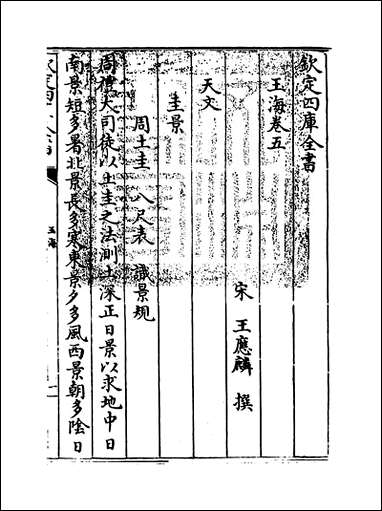 欽定四庫全書
玉海卷五
宋 王應麟 撰
天文
圭景
周土圭 八尺表 識景規
周禮大司徒以土圭之法測土深正日景以求地中日
南景短多暑北景長多寒東景夕多風西景朝多陰日
玉海